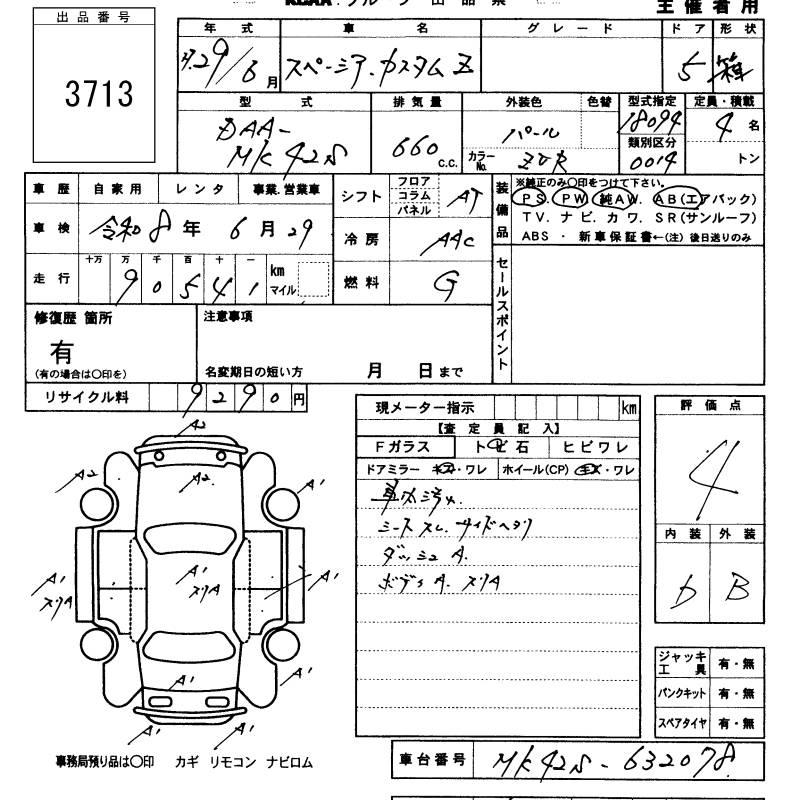 出品番号
3713
主催者用
年式 車名 グレード ドア 形状
29/6月 スペーシア.カスタムZ 5 箱
型式 排気量 外装色 色替 型式指定 定員・積載
DAA-MK42S 660 c.c. パール 18094 4名
カラーNo. ZVR 類別区分 0014 トン
車歴 自家用 レンタ 事業.営業車
車検 令和8年6月29
走行 十万 万 千 百 十 一
90541 km マイル
シフト フロア コラム パネル AT
冷房 AAC
燃料 G
装備品 ※純正のみ○印をつけて下さい。
PS. PW. 純AW. AB(エアバック)
TV. ナビ. カワ. SR(サンルーフ)
ABS ・ 新車保証書←(注) 後日送りのみ
セールスポイント
修復歴 箇所
有
(有の場合は○印を)
注意事項
名変期日の短い方 月 日まで
リサイクル料 9290円
現メーター指示 km
【査定員記入】
Fガラス トビ石 ヒビワレ
ドアミラー キズ・ワレ ホイール(CP) キズ・ワレ
車内汚れ
シートスレ. サイドヘタリ
ダッシュA.
ボディA. スリA
評価点
4
内装 外装
D B
ジャッキ工具 有・無
パンクキット 有・無
スペアタイヤ 有・無
A2
A2 A2 A'
A' スリA A' スリA A'
A' A' A'
A' A'
事務局預り品は○印 カギ リモコン ナビロム
車台番号 MK42S-632078